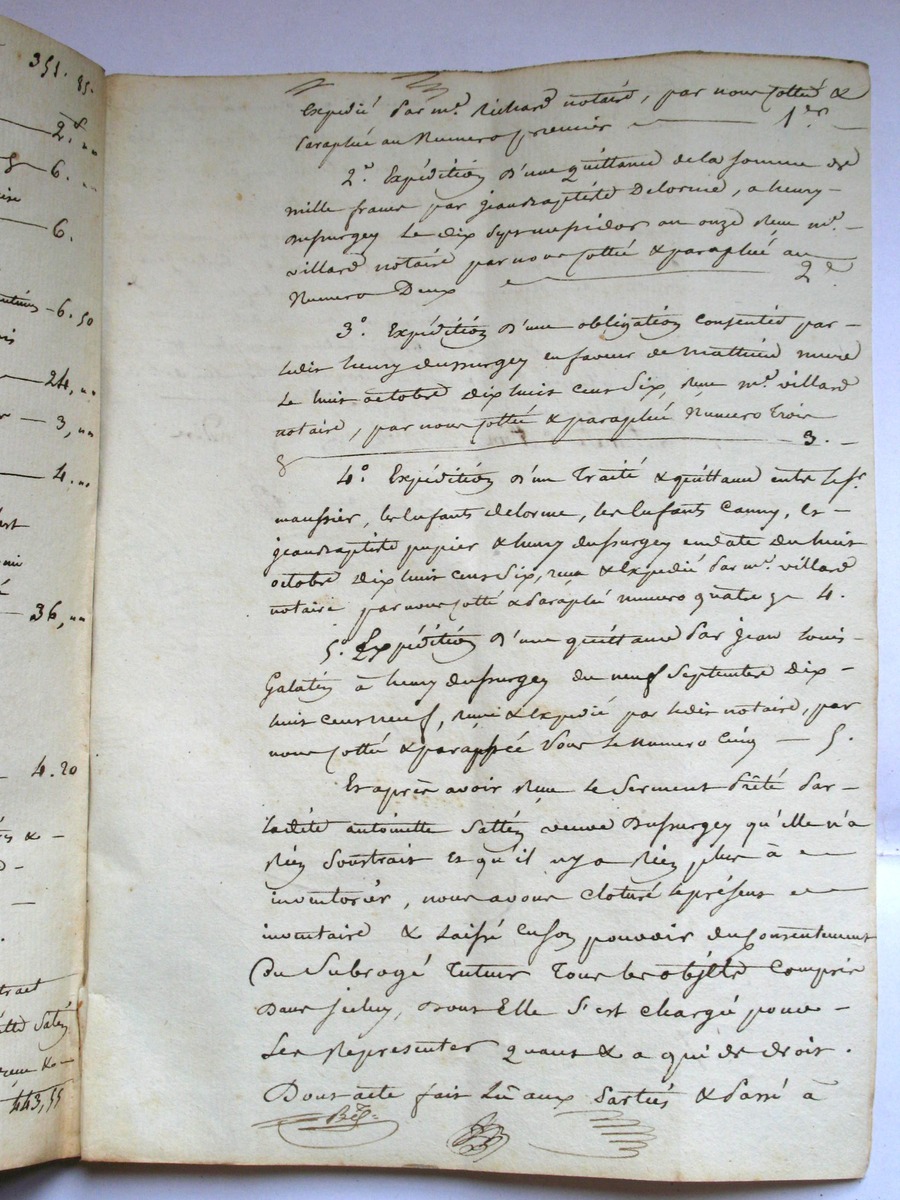 351. 85.
2.
6.
6.
6. 50
24,
3,
4.
36,
4.20
&
tract
443,55
Expédié par me. Richard notaire, par nous cotté &
paraphée au Numero premier 1er
2°. Expédition d'une quittance de la somme de
mille francs par jean baptiste Delorme, a henry
Dussurgey le dix sept messidor an onze Reçue me.
villard notaire par nous cotté & paraphé au
Numero Deux 2e
3°. Expédition d'une obligation consentie par
ledit henry dussurgey en faveur de mathieu
le huit octobre dix huit cent six, reçue me. villard
notaire, par nous cotté & paraphée Numero trois
3.
4° Expédition d'un traité & quittance entre le sr.
maussier, les enfants delorme, les enfants Canny, et
jean baptiste pupier & henry dussurgey en date du huit
octobre dix huit cent six, reçu & expédié par me. villard
notaire par nous cotté & paraphé numero quatre 4.
5°. Expédition d'une quittance par jean louis
Galatin à henry dussurgey du neuf Septembre dix
huit cent neuf, reçue & expédié par ledit notaire, par
nous cotté & paraphée sous le numero cinq 5.
Et après avoir Reçu le serment prêté par
ladite antoinette Satin veuve Dussurgey qu'elle n'a
Rien soustrait et qu'il ny a Rien plus à
inventorier, nous avons cloturé le présent
inventaire & laissé en son pouvoir du consentement
du Subrogé tuteur tous les objets compris
dans icelui, dont Elle s'est chargé pour
les Représenter quant & a qui de droit.
Dont acte fait Lu aux parties & passé à